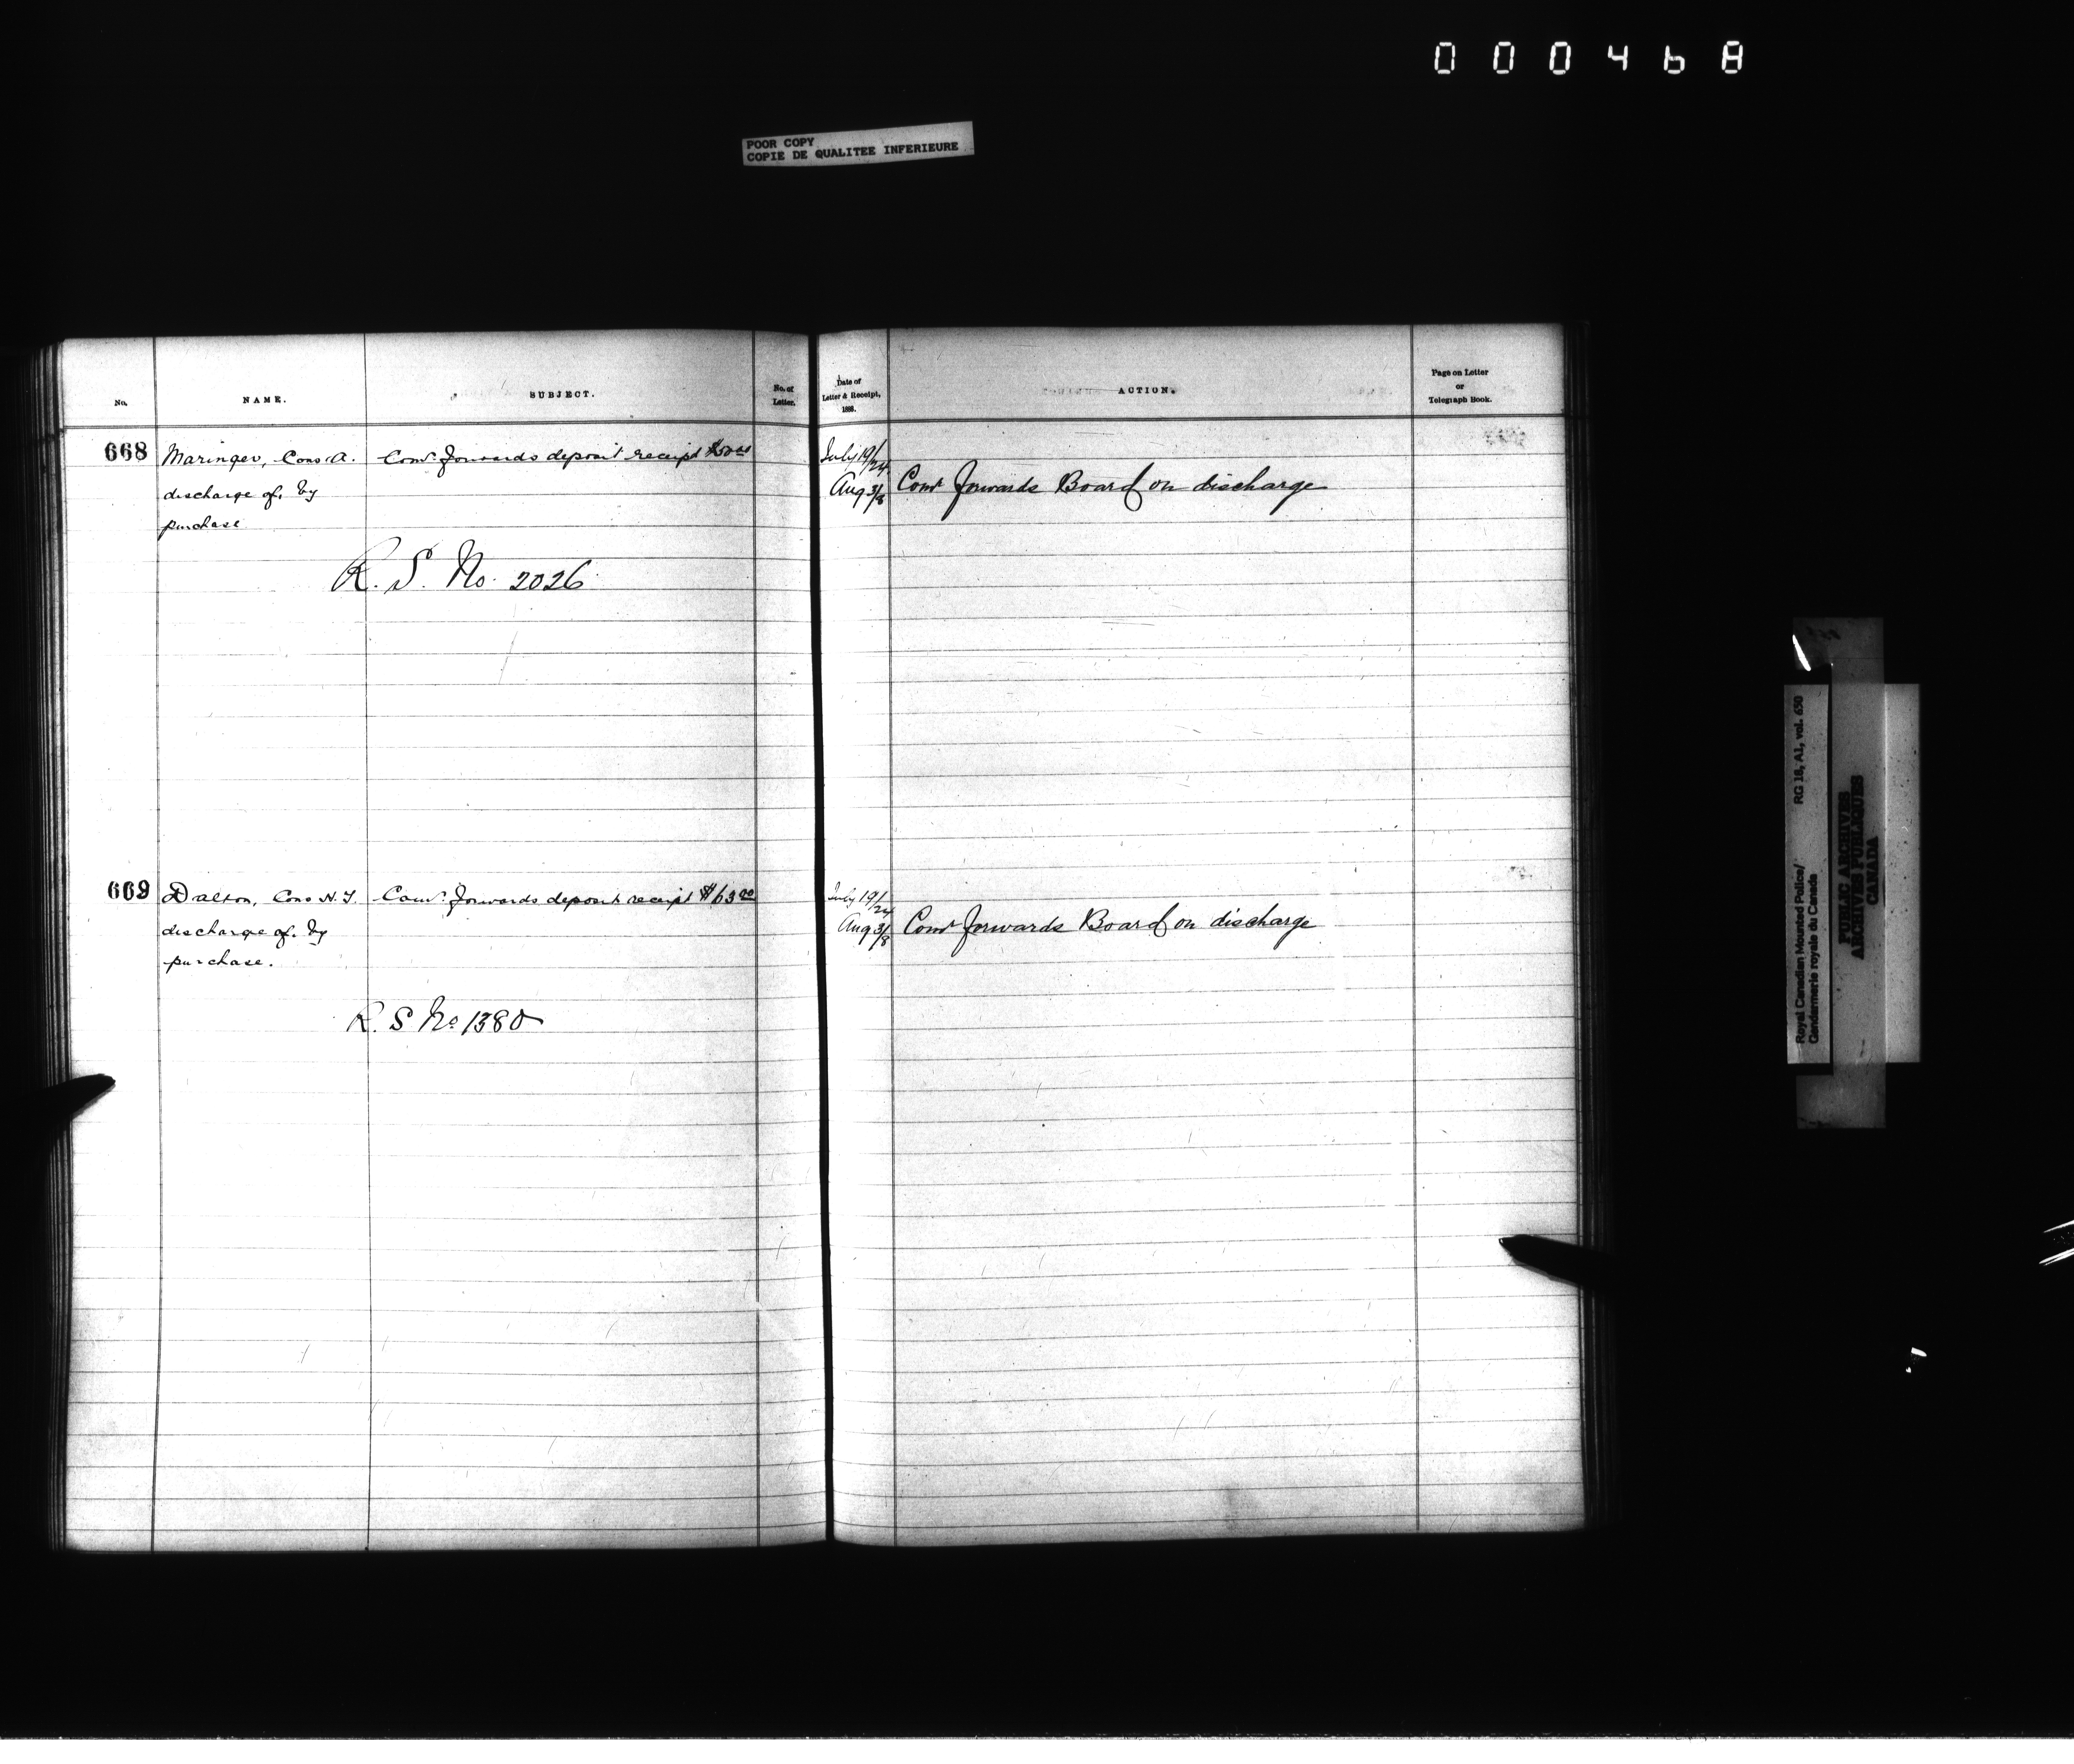 000468
POOR COPY
COPIE DE QUALITEE INFERIEURE
No.
NAME.
SUBJECT.
No. of
Letter.
Date of
Letter & Receipt,
1888.
ACTION.
Page on Letter
or
Telegraph Book.
668 Maringer, Cons. A. Comr. forwards deposit receipt July 19/24
discharge of. by Aug 3/8 Comr forwards Board on discharge
purchase
R. S. No. 2026
669 Dalton, Cons H. T. Comr. forwards deposit receipt $63.00 July 19/24
discharge of. by Aug 3/8 Comr forwards Board on discharge
purchase.
R. S No 1380
Royal Canadian Mounted Police/ RG 18, A1, vol. 650
Gendarmerie royale du Canada
PUBLIC ARCHIVES
ARCHIVES PUBLIQUES
CANADA